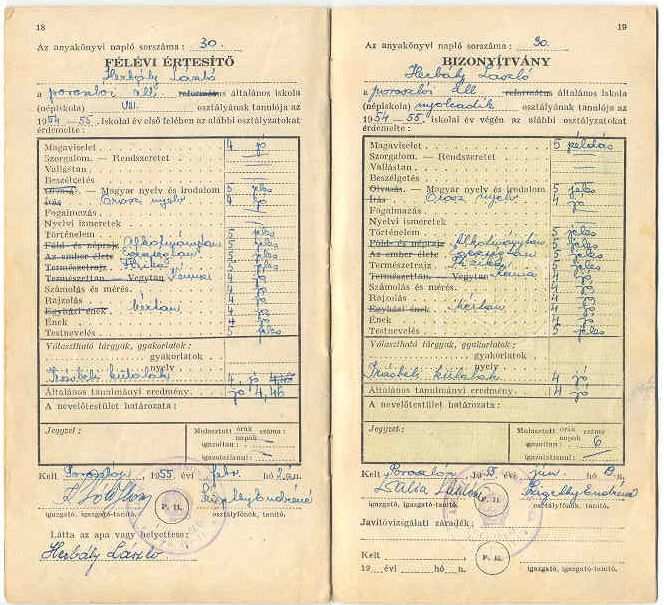 18
Az anyakönyvi napló sorszáma: 30.
FÉLÉVI ÉRTESITŐ
Herbály László
a poroszlói áll. református általános iskola
(népiskola) VIII. osztályának tanulója az
1954—55. iskolai év első felében az alábbi osztályzatokat
érdemelte:
Magaviselet 4 jó
Szorgalom. — Rendszeretet
Vallástan
Beszélgetés
Olvasás. — Magyar nyelv és irodalom 5 jeles
Irás Orosz nyelv 4 jó
Fogalmazás
Nyelvi ismeretek
Történelem 5 jeles
Föld- és néprajz Alkotmánytan 5 jeles
Az ember élete 5 jeles
Természetrajz Fizika 5 jeles
Természettan — Vegytan Kémia 4 jó
Számolás és mérés 4 jó
Rajzolás 4 jó
Egyházi ének 4 jó
Ének 4 jó
Testnevelés 5 jeles
Választható tárgyak, gyakorlatok:
gyakorlatok
nyelv
Irásbeli külalak 4, jó
Általános tanulmányi eredmény jó 4,46
A nevelőtestület határozata:
Jegyzet:
Mulasztott órák napok száma:
igazoltan:
igazolatlanul:
Kelt Poroszlón, 1955 évi febr. hó
P. H.
igazgató, igazgató-tanító. osztályfőnök, tanító.
Látta az apa vagy helyettese:
Herbály László
19
Az anyakönyvi napló sorszáma: 30.
BIZONYÍTVÁNY
Herbály László
a poroszlói áll református általános iskola
(népiskola) nyolcadik osztályának tanulója az
1954—55. iskolai év végén az alábbi osztályzatokat
érdemelte:
Magaviselet 5 példás
Szorgalom. — Rendszeretet
Vallástan
Beszélgetés
Olvasás. — Magyar nyelv és irodalom 5 jeles
Irás Orosz nyelv 4 jó
Fogalmazás
Nyelvi ismeretek
Történelem 5 jeles
Föld- és néprajz Alkotmánytan 5 jeles
Az ember élete 5 jeles
Természetrajz Fizika 5 jeles
Természettan — Vegytan Kémia 4 jó
Számolás és mérés 4 jó
Rajzolás 4 jó
Egyházi ének 4 jó
Ének 4 jó
Testnevelés 5 jeles
Választható tárgyak, gyakorlatok:
gyakorlatok
nyelv
Irásbeli külalak 4 jó
Általános tanulmányi eredmény 4 jó
A nevelőtestület határozata:
Jegyzet:
Mulasztott órák napok száma
igazoltan: 6
igazolatlanul:
Kelt Poroszlón, 1955 évi jún. hó
P. H.
igazgató, igazgató-tanító. osztályfőnök, tanító.
Javítóvizsgálati záradék:
Kelt
19 évi hó n.
P. H.
igazgató, igazgató-tanító.